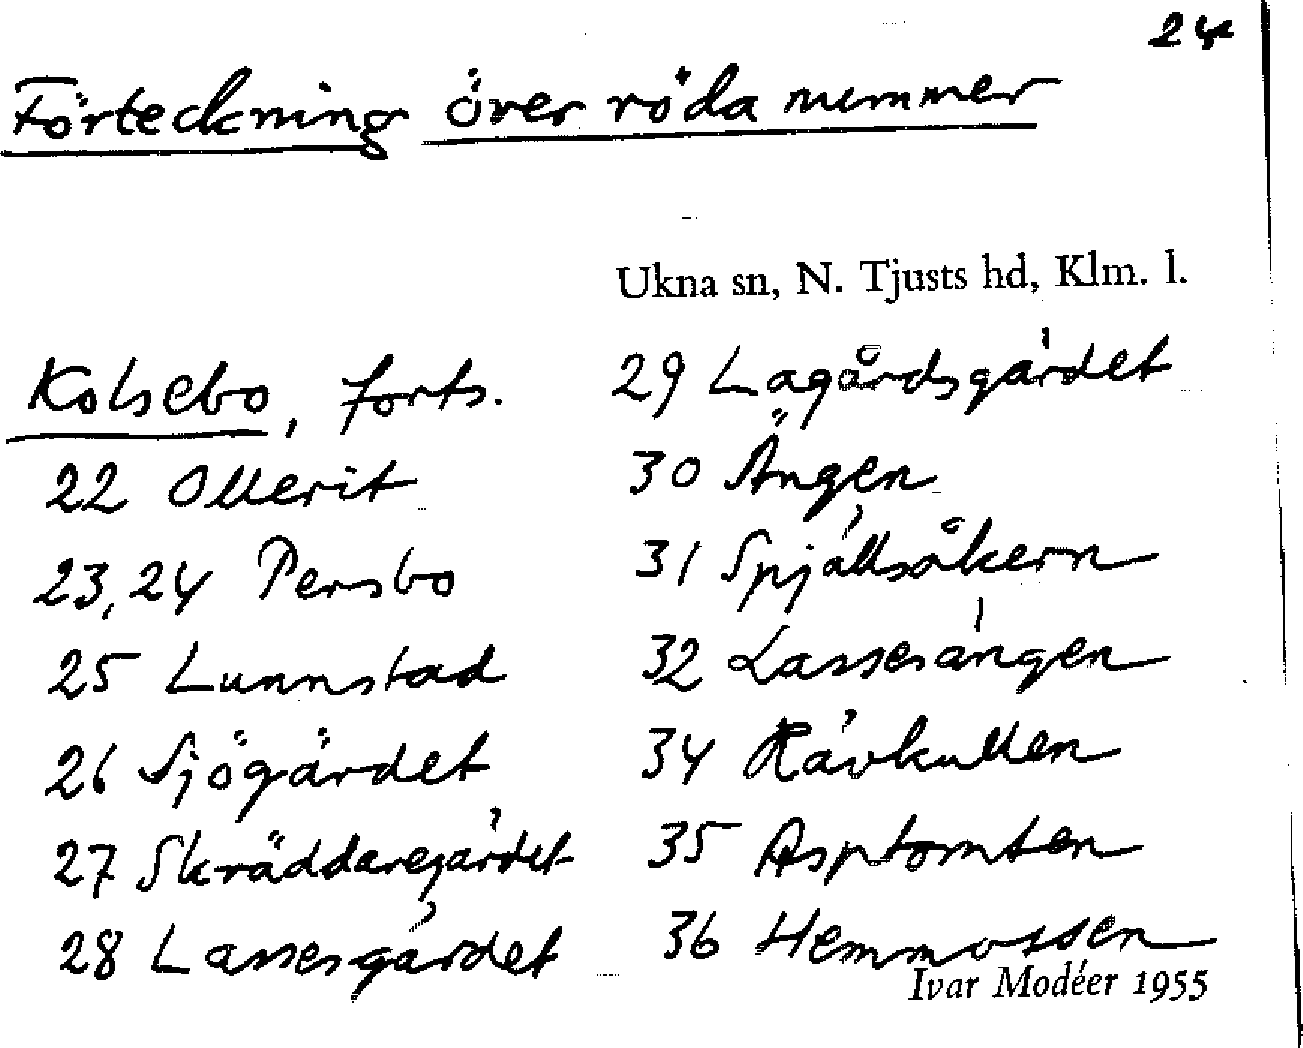 24
Förteckning över röda nummer
Ukna sn, N. Tjusts hd, Klm. l.
Kolsebo, forts.
22 Ollerit
23, 24 Persbo
25 Lunnstad
26 Sjögärdet
27 Skräddaregärdet
28 Lassesgärdet
29 Lagårdsgärdet
30 Ängen
31 Spjällsåkern
32 Lassesängen
34 Rävkullen
35 Asptomten
36 Hemmossen
Ivar Modéer 1955